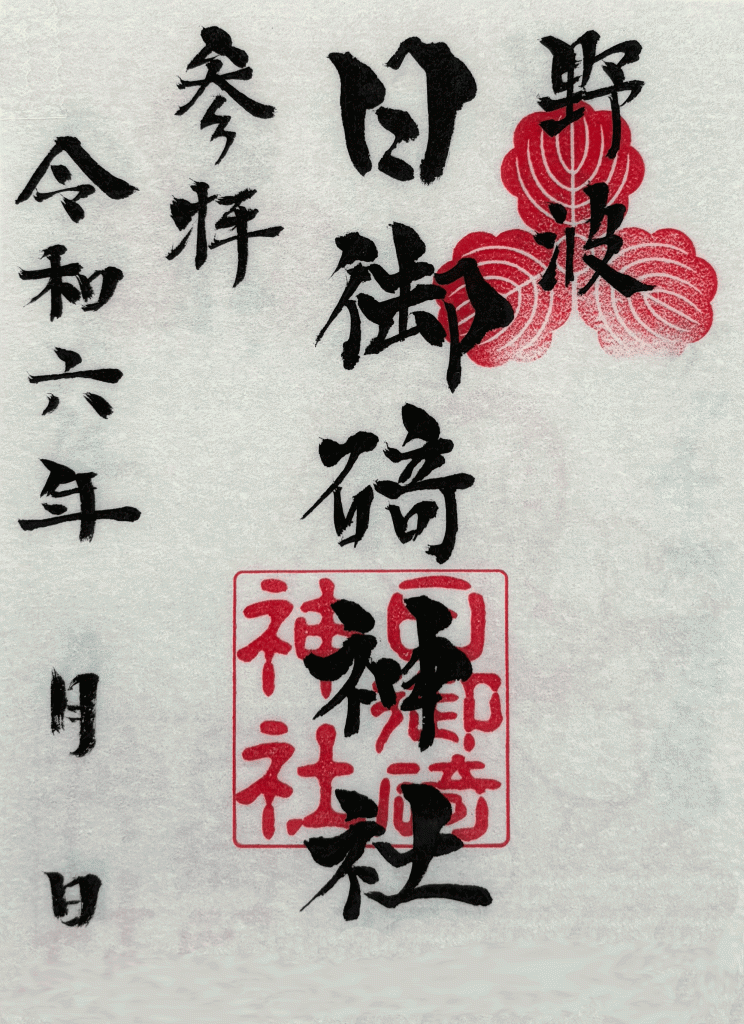 野波
日御碕神社
日御碕
神社
参拝
令和六年 月 日